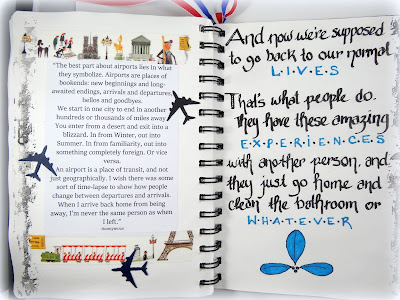 "The best part about airports lies in what
they symbolize. Airports are places of
bookends: new beginnings and long-
awaited endings, arrivals and departures,
hellos and goodbyes.
We start in one city to end in another
hundreds or thousands of miles away.
You enter from a desert and exit into a
blizzard. In from Winter, out into
Summer. In from familiarity, out into
something completely foreign. Or vice
versa.
An airport is a place of transit, and not
just geographically. I wish there was some
sort of time-lapse to show how people
change between departures and arrivals.
When I arrive back home from being
away, I'm never the same person as when
I left."
And now we're supposed
to go back to our normal
L·I·V·E·S
That's what people do.
They have these amazing
E·X·P·E·R·I·E·N·C·E·S
with another person, and
they just go home and
clean the bathroom or
W·H·A·T·E·V·E·R